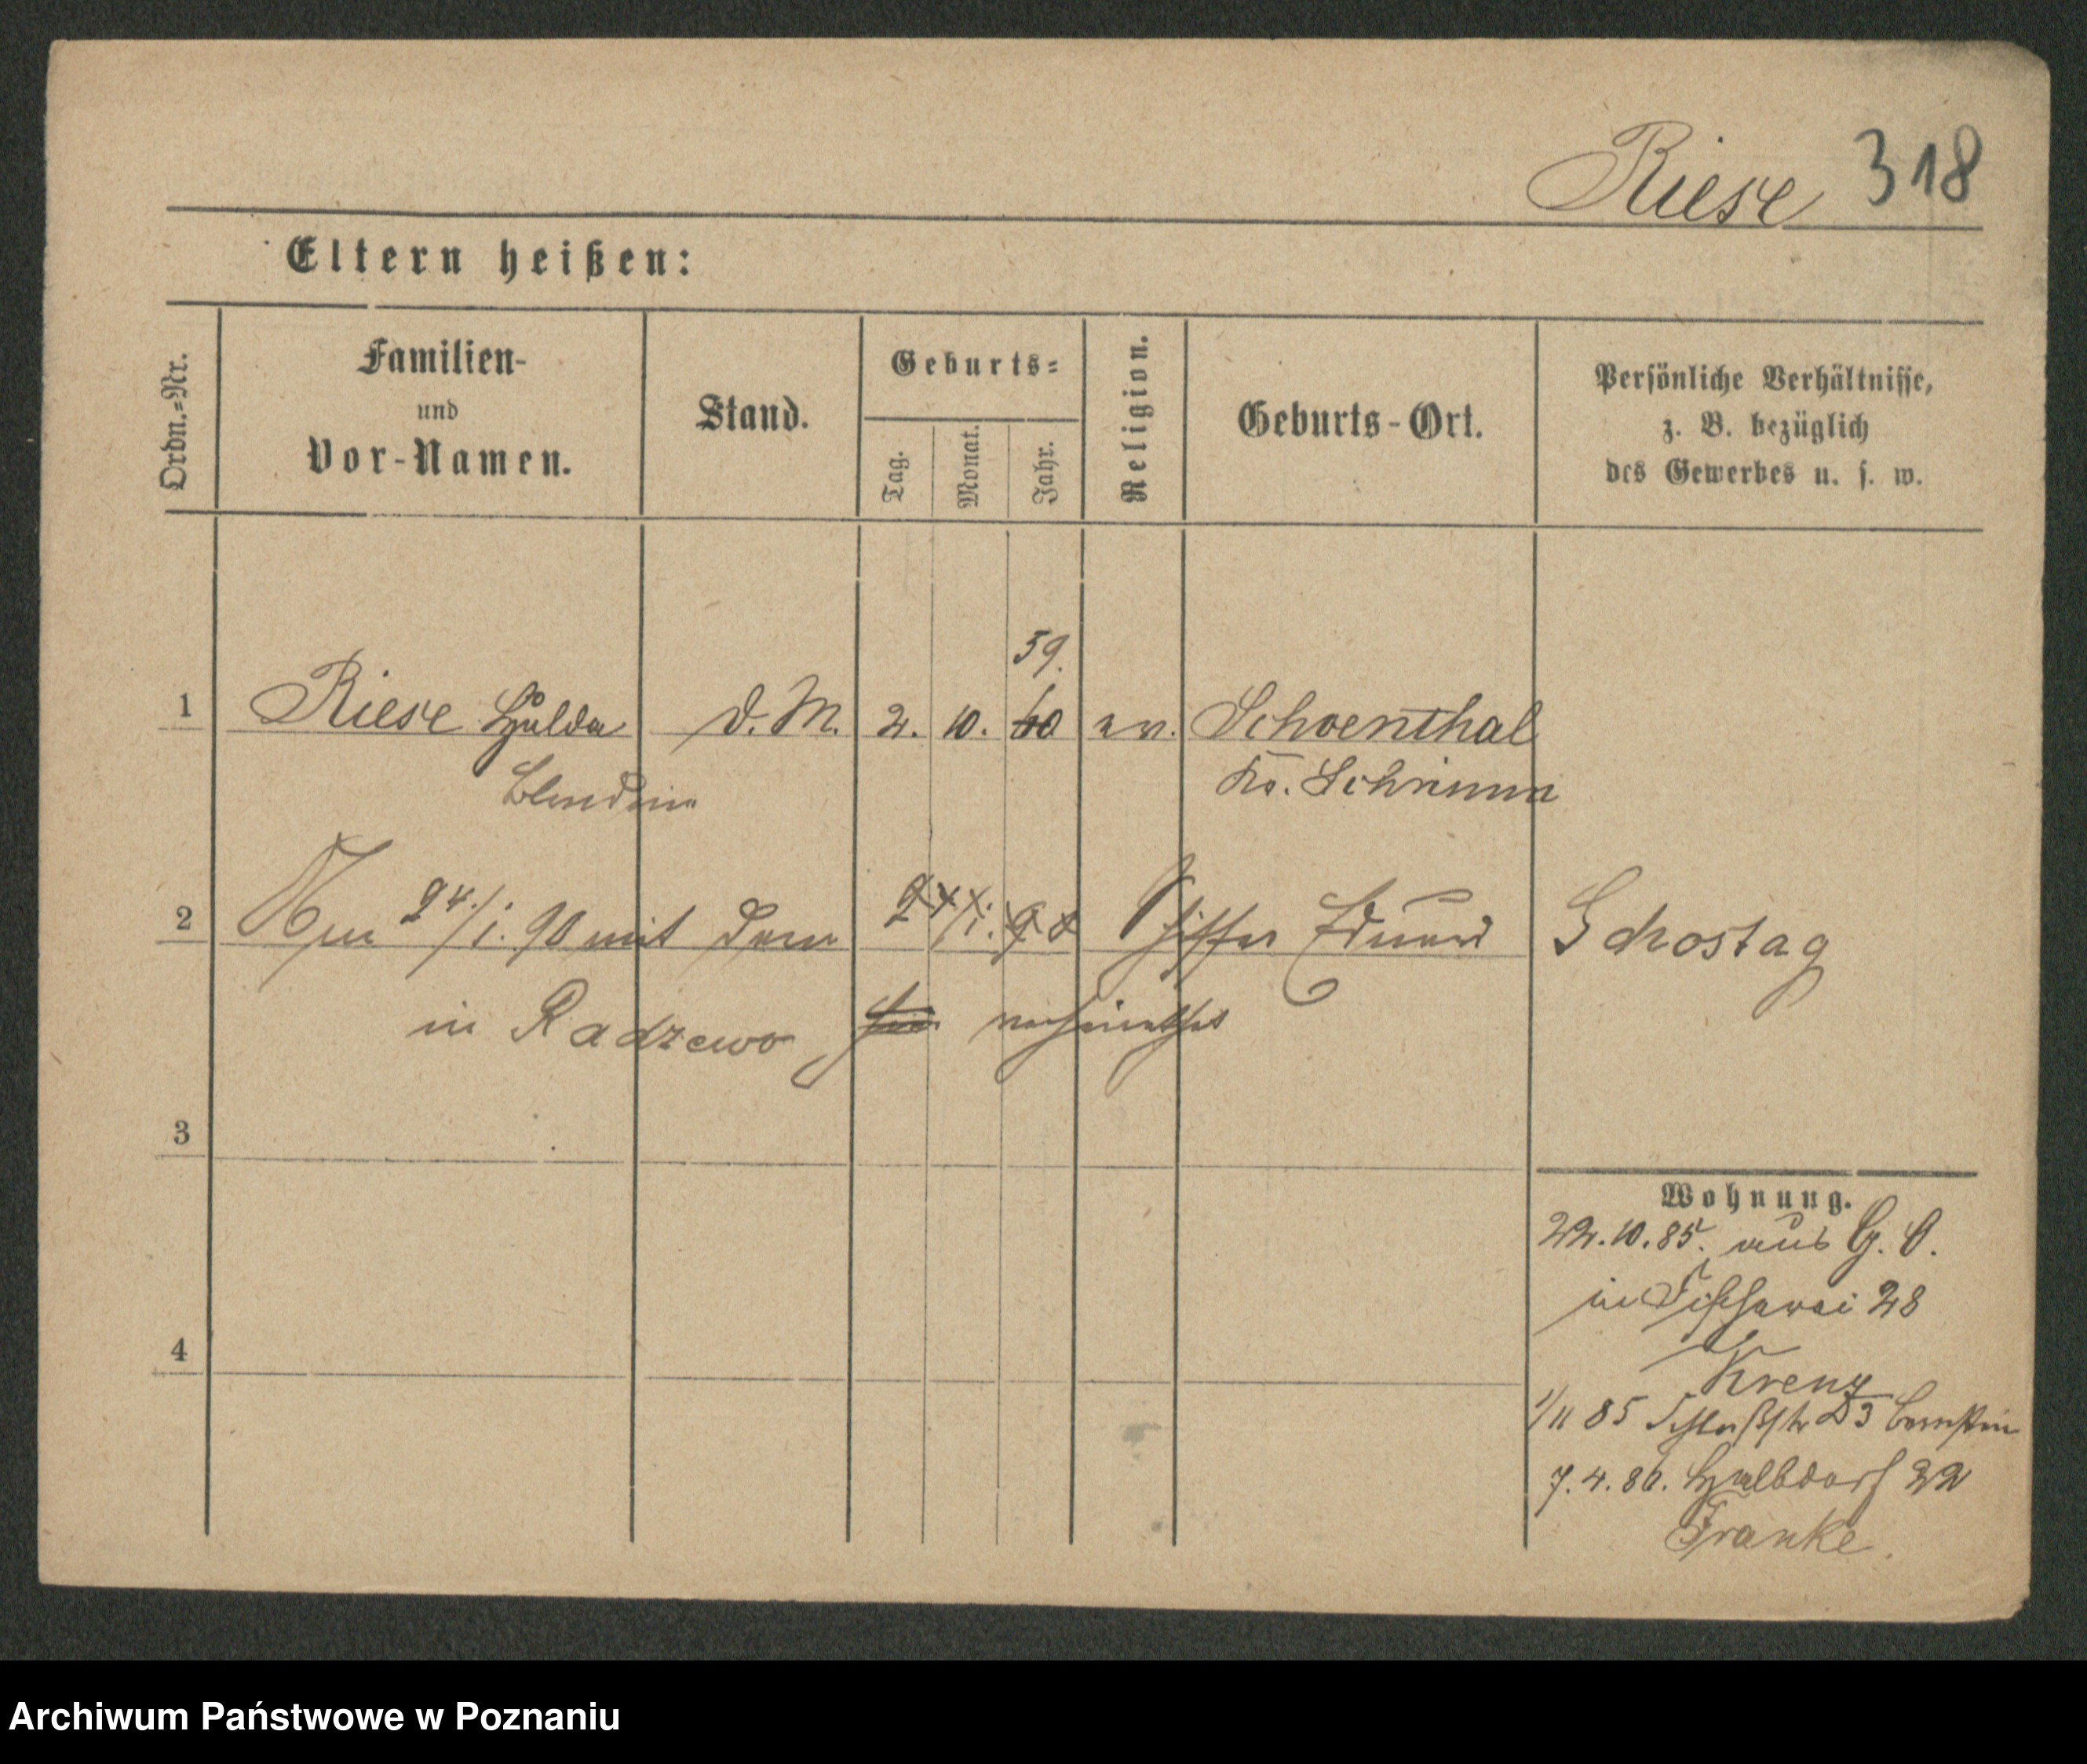 Riese 318
Eltern heißen:
Ordn.=Nr.
Familien-
und
Vor-Namen.
Stand.
Geburts=
Tag.
Monat.
Jahr.
Religion.
Geburts-Ort.
Persönliche Verhältnisse,
z. B. bezüglich
des Gewerbes u. s. w.
59.
1 Riese Hulda D. M. 2. 10. 60 ev. Schoenthal
Kr. Schrimm
2 Am 24/1. 90 mit dem 24/1. 90 Eduard Schostag
in Radzewo verheirathet
3
4
Wohnung.
22.10.85. aus G. O.
in Fischerei 28
Krenz
1/11 85 Schloßstr 23 Bernstein
7.4.86. Halbdorf 22
Franke.
Archiwum Państwowe w Poznaniu